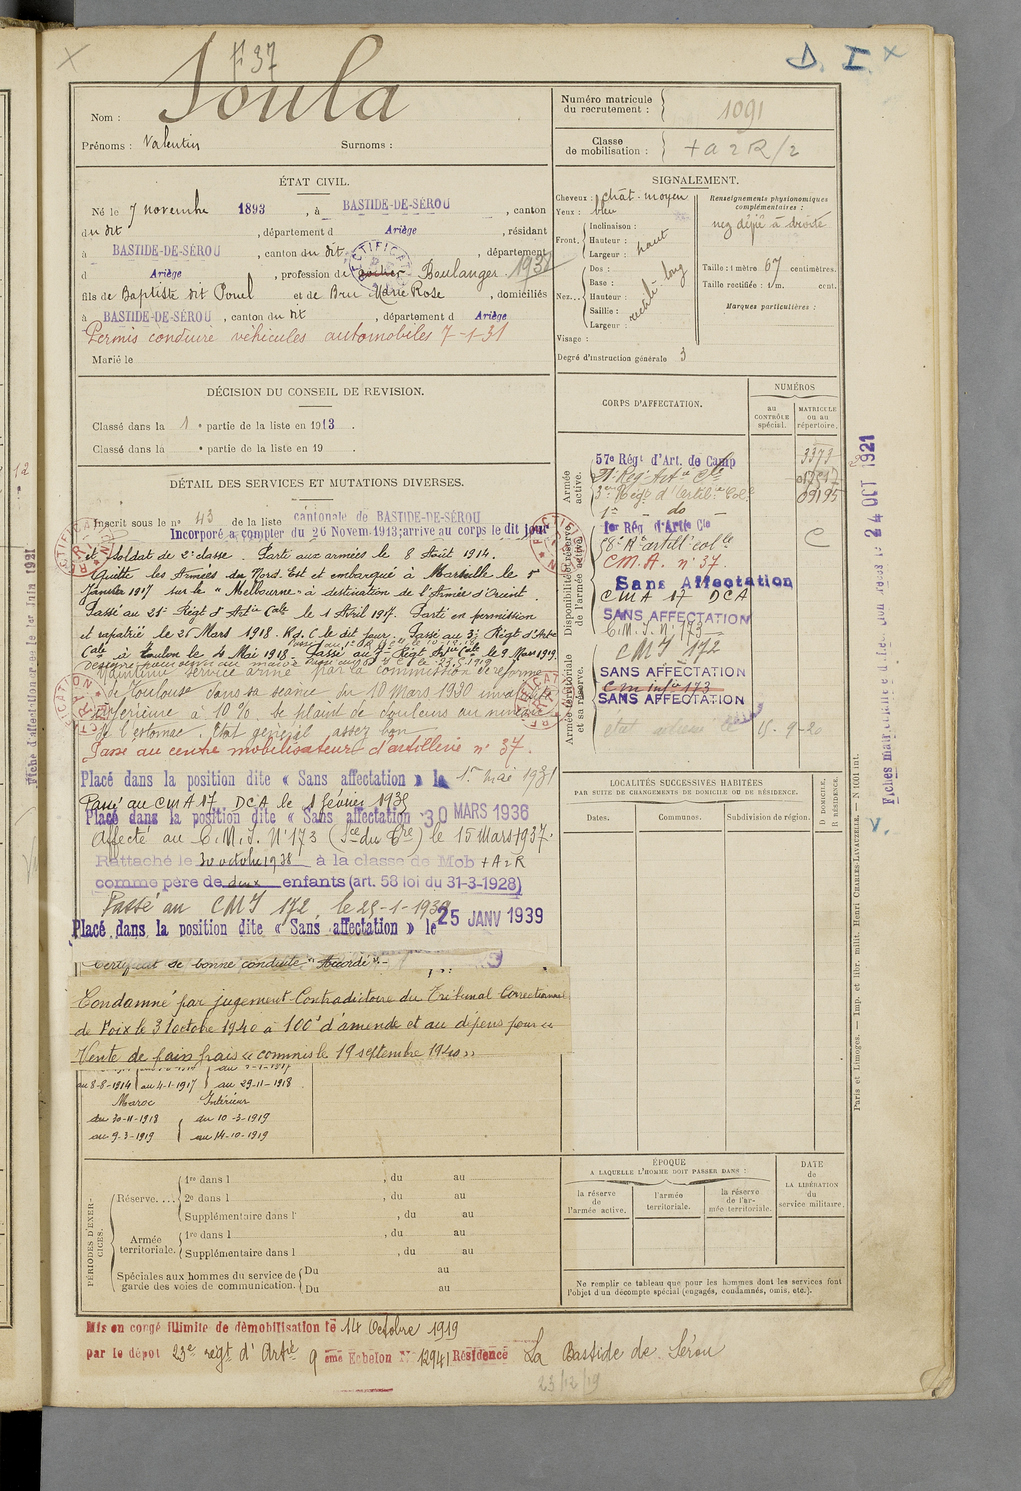 F 37
D. I.
Nom : Soula
Prénoms : Valentin Surnoms :
Numéro matricule du recrutement : 1091
Classe de mobilisation : + a 2 R/2
ÉTAT CIVIL.
Né le 7 novembre 1893, à BASTIDE-DE-SÉROU, canton
du dit, département d Ariège, résidant
à BASTIDE-DE-SÉROU, canton du dit, département
d Ariège, profession de Boulanger
fils de Baptiste dit Poul et de Bru Marie Rose, domiciliés
à BASTIDE-DE-SÉROU, canton du dit, département d Ariège
Permis conduire véhicules automobiles 7-1-31
Marié le
SIGNALEMENT.
Cheveux : chât. moyen
Yeux : bleu
Front.
Inclinaison :
Hauteur : haut
Largeur :
Nez...
Dos :
Base :
Hauteur :
Saillie :
Largeur :
rectili. long
Visage :
Degré d'instruction générale 3
Renseignements physionomiques complémentaires :
nez déjé à droite
Taille : 1 mètre 67 centimètres.
Taille rectifiée : 1 m. cent.
Marques particulières :
DÉCISION DU CONSEIL DE REVISION.
Classé dans la 1e partie de la liste en 1913.
Classé dans la e partie de la liste en 19 .
DÉTAIL DES SERVICES ET MUTATIONS DIVERSES.
Inscrit sous le n° 43 de la liste cantonale de BASTIDE-DE-SÉROU
Incorporé à compter du 26 Novem 1913; arrivé au corps le dit jour
et soldat de 2e classe. Parti aux armées le 8 Août 1914.
Quitte les Armées du Nord. Est et embarqué à Marseille le 5
Janvier 1917 sur le "Melbourne" à destination de l'Armée d'Orient.
Passé au 21e Régt d'Artie Cale le 1 Avril 1917. Parti en permission
et rapatrié le 25 Mars 1918. Rd. C le dit jour. Passé au 3e Régt d'Art
Cale à Toulon le 4 Mai 1918. Passé au 1er Régt Artie Cale le 9 Mars 1919
Maintenu service armé par la commission de réforme
de Toulouse dans sa séance du 10 Mars 1930 invalidité
inférieure à 10 %. Se plaint de douleurs au niveau
de l'estomac. Etat général assez bon
Passé au centre mobilisateur d'artillerie n° 37.
Placé dans la position dite « Sans affectation » le 1er mai 1931
Passé au CMA 17 DCA le 1 février 1935
Placé dans la position dite « Sans affectation 30 MARS 1936
Affecté au C.M.I. N° 173 le 15 Mars 1937.
Rattaché le 30 octobre 1938 à la classe de Mob + A 2 R
comme père de deux enfants (art. 58 loi du 31-3-1928)
Passé au CMI 172 le 25-1-1939
Placé dans la position dite « Sans affectation » le 25 JANV 1939
Certificat de bonne conduite "Accordé".
Condamné par jugement Contradictoire du Tribunal Correctionnel
de Foix le 31 octobre 1940 à 100f d'amende et aux dépens pour «
Vente de pain frais » commis le 19 septembre 1940 »
au 8-8-1914 au 4-1-1917 au 29-11-1918
Maroc Intérieur
du 30-11-1918 du 10-3-1919
au 9-3-1919 au 14-10-1919
CORPS D'AFFECTATION.
NUMÉROS
au CONTRÔLE spécial.
MATRICULE ou au répertoire.
Armée active.
57e Régt d'Art. de Camp 3373
21e Rég Arte Cle 017517
3eme Régt d'Artile Cole 09195
1er do
Disponibilité et réserve de l'armée active.
1er Rég d'Artie Cle
58e Rt artill colle C
C.M.A. n° 37.
Sans Affectation
CMA 17 DCA
SANS AFFECTATION
C.M.I. N° 173
Armée territoriale et sa réserve.
CMI 172
SANS AFFECTATION
Cm infie 173
SANS AFFECTATION
15-9-20
LOCALITÉS SUCCESSIVES HABITÉES
PAR SUITE DE CHANGEMENTS DE DOMICILE OU DE RÉSIDENCE.
Dates. Communes. Subdivision de région.
D. DOMICILE. R. RÉSIDENCE.
PÉRIODES D'EXERCICES.
Réserve....
1re dans l , du au
2e dans l , du au
Supplémentaire dans l' , du au
Armée territoriale.
1re dans l , du au
Supplémentaire dans l , du au
Spéciales aux hommes du service de garde des voies de communication.
Du au
Du au
ÉPOQUE
A LAQUELLE L'HOMME DOIT PASSER DANS :
la réserve de l'armée active.
l'armée territoriale.
la réserve de l'armée territoriale.
DATE de LA LIBÉRATION du service militaire.
Ne remplir ce tableau que pour les hommes dont les services font
l'objet d'un décompte spécial (engagés, condamnés, omis, etc.).
Mis en congé illimité de démobilisation le 14 Octobre 1919
par le dépôt 23e régt d'Artie 9 ème Echelon N° 12941 Résidence La Bastide de Sérou
23/12/19
24 OCT 1921
Paris et Limoges. — Imp. et libr. milit. Henri CHARLES-LAVAUZELLE. — N 1001 int.